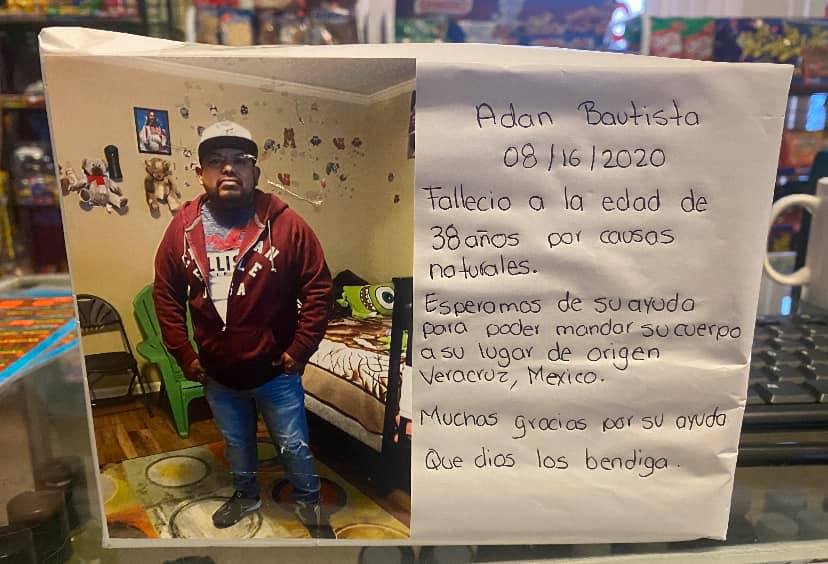 Adan Bautista
08/16/2020
Fallecio a la edad de
38 años por causas
naturales.
Esperamos de su ayuda
para poder mandar su cuerpo
a su lugar de origen
Veracruz, Mexico.
Muchas gracias por su ayuda
Que dios los bendiga.